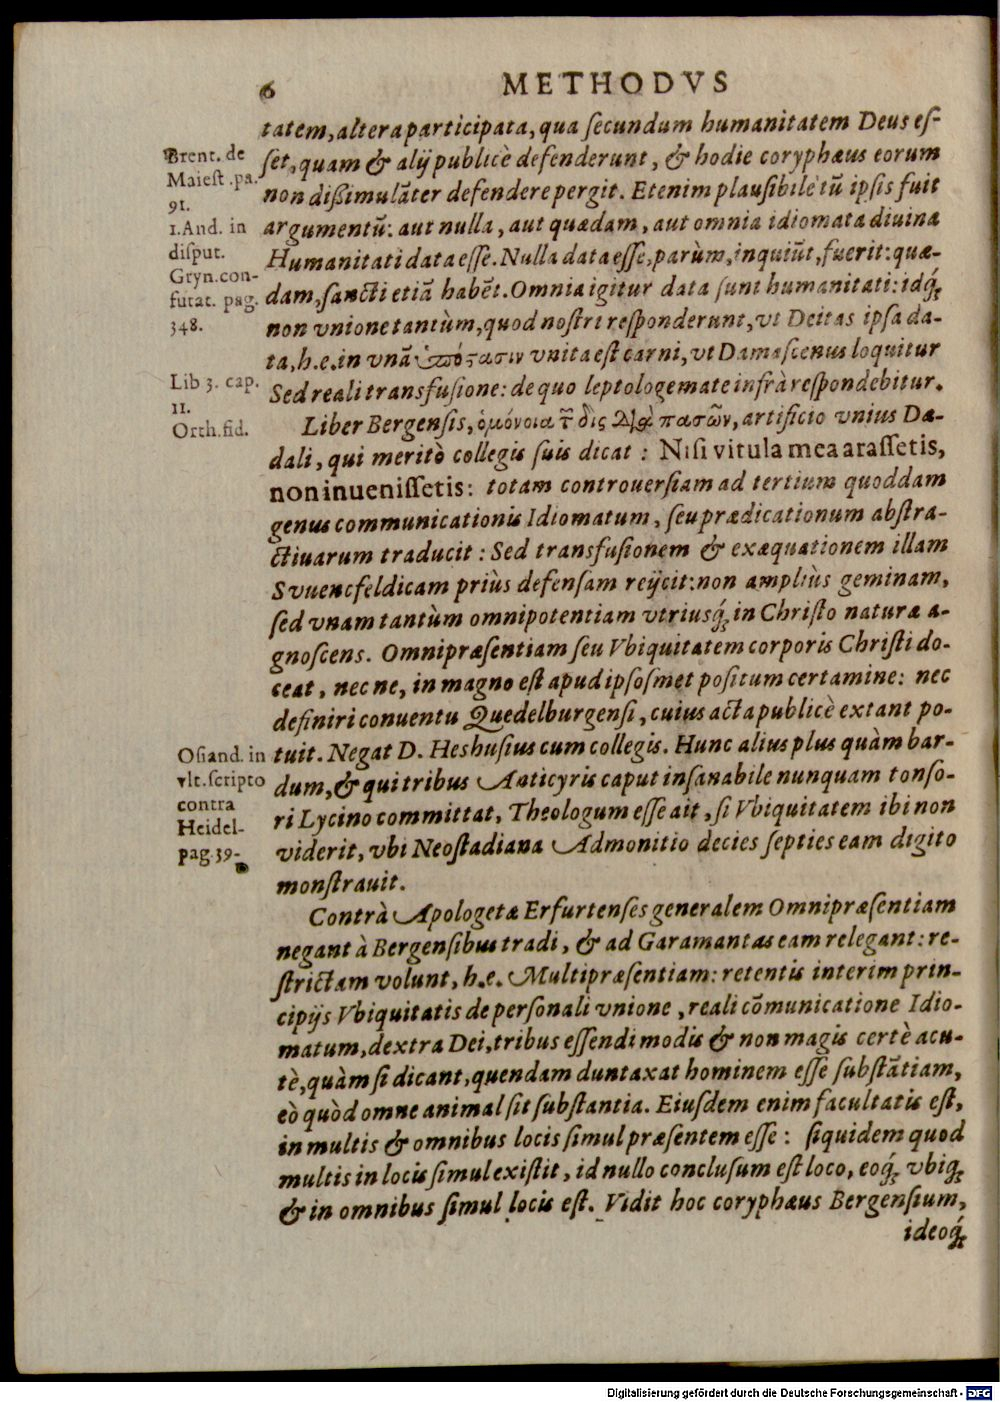 6 METHODVS
tatem, altera participata, qua ſecundum humanitatem Deus eſ-
ſet, quam & alij publicè defenderunt, & hodie coryphæus eorum
non dißimulãter defendere pergit. Etenim plauſibile tũ ipſis fuit
argumentũ: aut nulla, aut quædam, aut omnia idiomata diuina
Humanitati data eſſe. Nulla data eſſe, parùm, inquiũt, fuerit: quæ-
dam, ſancti etiã habẽt. Omnia igitur data ſunt humanitati: idq́;
non vnione tantùm, quod noſtri reſponderunt, vt Deitas ipſa da-
ta, h.e. in vnã ὑπόϛασιν vnita eſt carni, vt Damaſcenus loquitur
Sed reali transfuſione: de quo leptologemate infrà reſpondebitur.
Brent. de
Maieſt. pa.
91.
1. And. in
diſput.
Gryn. con-
futat. pag.
348.
Lib 3. cap.
11.
Orth. fid.
Liber Bergenſis, ὁμόνοια τ̃ δὶς πασῶν, artificio vnius Dæ-
dali, qui meritò collegis ſuis dicat: Niſi vitula mea araſſetis,
non inueniſſetis: totam controuerſiam ad tertium quoddam
genus communicationis Idiomatum, ſeu prædicationum abſtra-
ctiuarum traducit: Sed transfuſionem & exæquationem illam
Svuencfeldicam priùs defenſam reijcit: non ampliùs geminam,
ſed vnam tantùm omnipotentiam vtriusq́; in Chriſto naturæ a-
gnoſcens. Omnipræſentiam ſeu Vbiquitatem corporis Chriſti do-
ceat, nec ne, in magno eſt apud ipſoſmet poſitum certamine: nec
definiri conuentu Quedelburgenſi, cuius acta publicè extant po-
tuit. Negat D. Heshuſius cum collegis. Hunc alius plus quàm bar-
dum, & qui tribus Anticyris caput inſanabile nunquam tonſo-
ri Lycino committat, Theologum eſſe ait, ſi Vbiquitatem ibi non
viderit, vbi Neoſtadiana Admonitio decies ſepties eam digito
monſtrauit.
Oſiand. in
vlt. ſcripto
contra
Heidel-
pag. 39.
Contrà Apologetæ Erfurtenſes generalem Omnipræſentiam
negant à Bergenſibus tradi, & ad Garamantas eam relegant: re-
ſtrictam volunt, h.e. Multipræſentiam: retentis interim prin-
cipijs Vbiquitatis de perſonali vnione, reali cõmunicatione Idio-
matum, dextra Dei, tribus eſſendi modis & non magis certè acu-
tè, quàm ſi dicant, quendam duntaxat hominem eſſe ſubſtãtiam,
eò quòd omne animal ſit ſubſtantia. Eiuſdem enim facultatis eſt,
in multis & omnibus locis ſimul præſentem eſſe: ſiquidem quod
multis in locis ſimul exiſtit, id nullo concluſum eſt loco, eoq́; vbiq́;
& in omnibus ſimul locis eſt. Vidit hoc coryphæus Bergenſium,
ideoq́;
Digitalisierung gefördert durch die Deutsche Forschungsgemeinschaft - DFG